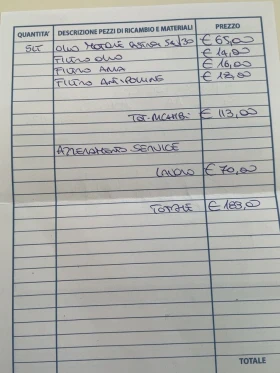 QUANTITA' DESCRIZIONE PEZZI DI RICAMBIO E MATERIALI PREZZO
5LT OLIO MOTORE 5W/30 € 65,00
FILTRO OLIO € 14,00
FILTRO ARIA € 16,00
FILTRO ANTIPOLLINE € 18,00
€ 113,00
AZZERAMENTO SERVICE
LAVORO € 70,00
TOTALE € 183,00
TOTALE